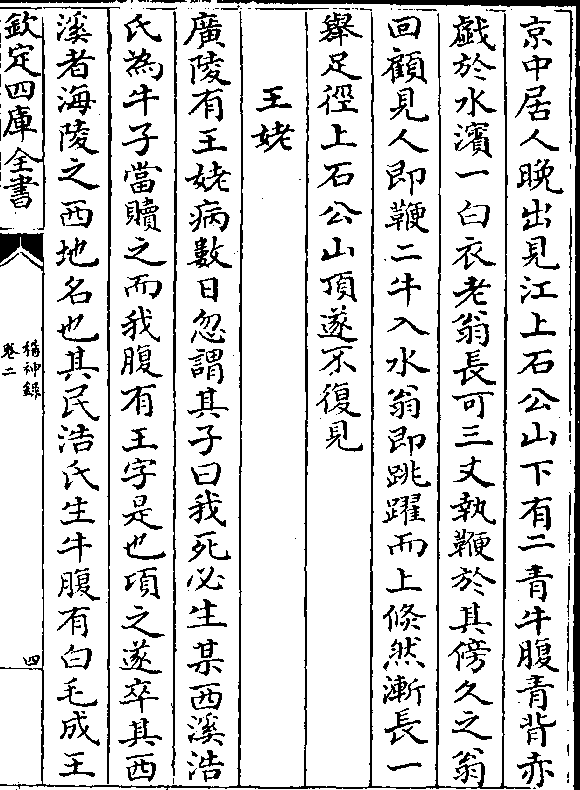 京中居人晚出見江上石公山下有二青牛腹青背赤
戯於水濱一白衣老翁長可三丈執鞭於其傍久之翁
回顧見人即鞭二牛入水翁即跳躍而上倐然漸長一
舉足徑上石公山頂遂不復見
王姥
廣陵有王姥病數日忽謂其子曰我死必生某西溪浩
氏為牛子當贖之而我腹有王字是也頃之遂卒其西
溪者海陵之西地名也其民浩氏生牛腹有白毛成王
欽定四庫全書
稽神錄
卷二
四